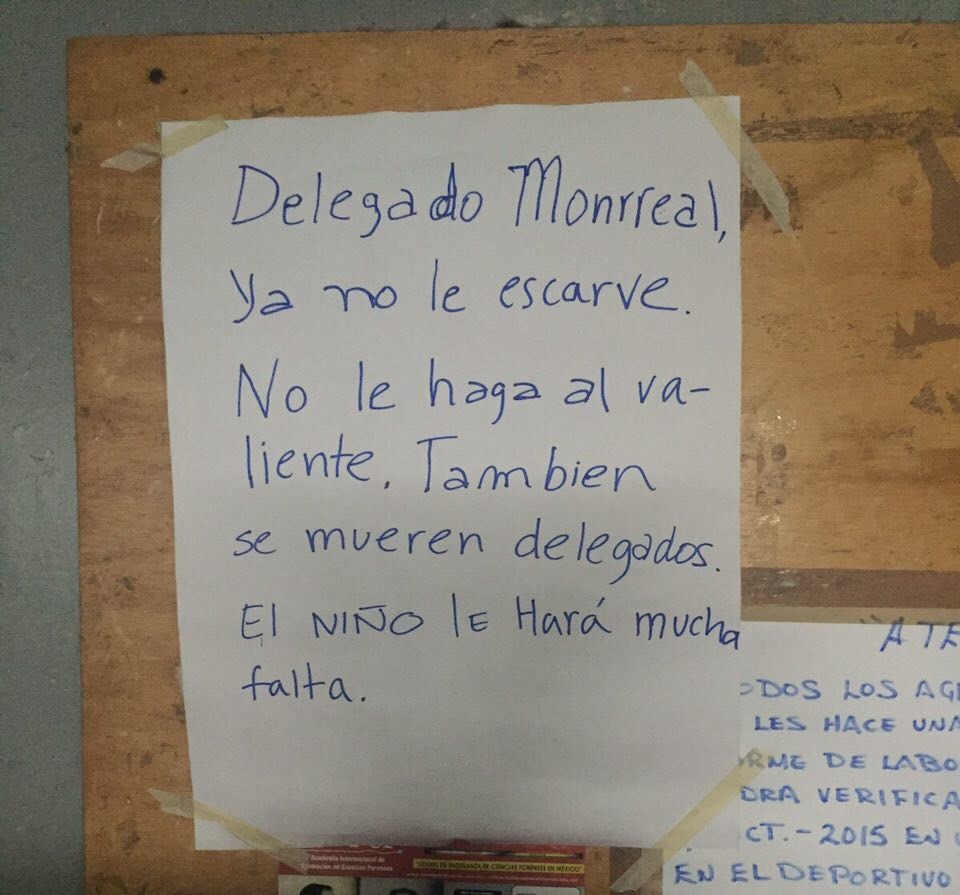 Delegado Monrreal,
Ya no le escarve.
No le haga al va-
liente. Tambien
se mueren delegados.
El NIÑO lE Hará mucha
falta.
ATE
ODOS LOS AG
LES HACE UNA
RME DE LABO
DRA VERIFICA
CT.-2015 EN
EN EL DEPORTIVO
Academia Internacional de
Formación en Ciencias Forenses
"LÍDERES EN ENSEÑANZA DE CIENCIAS FORENSES EN MÉXICO"